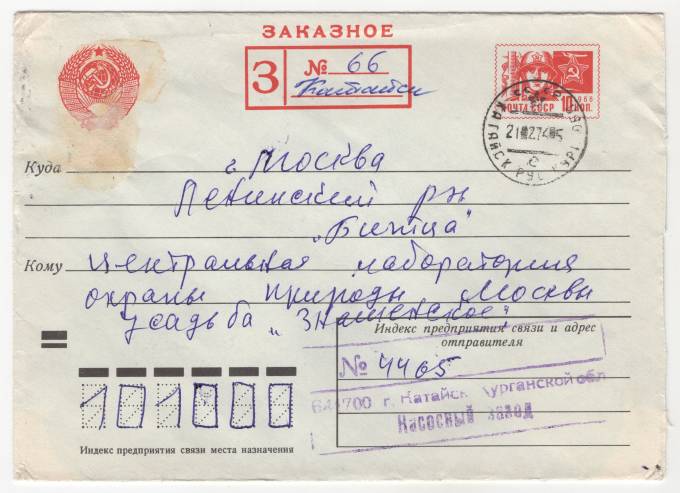 ЗАКАЗНОЕ
З № 66
Катайск
ПОЧТА СССР 10 КОП.
КАТАЙСК
Куда г. Москва
Ленинский рн
„Битца"
Кому Центральная лаборатория
охраны природы Москвы
усадьба „Знаменское"
Индекс предприятия связи и адрес
отправителя
№ 4465
г. Катайск Курганской обл
Насосный завод
Индекс предприятия связи места назначения